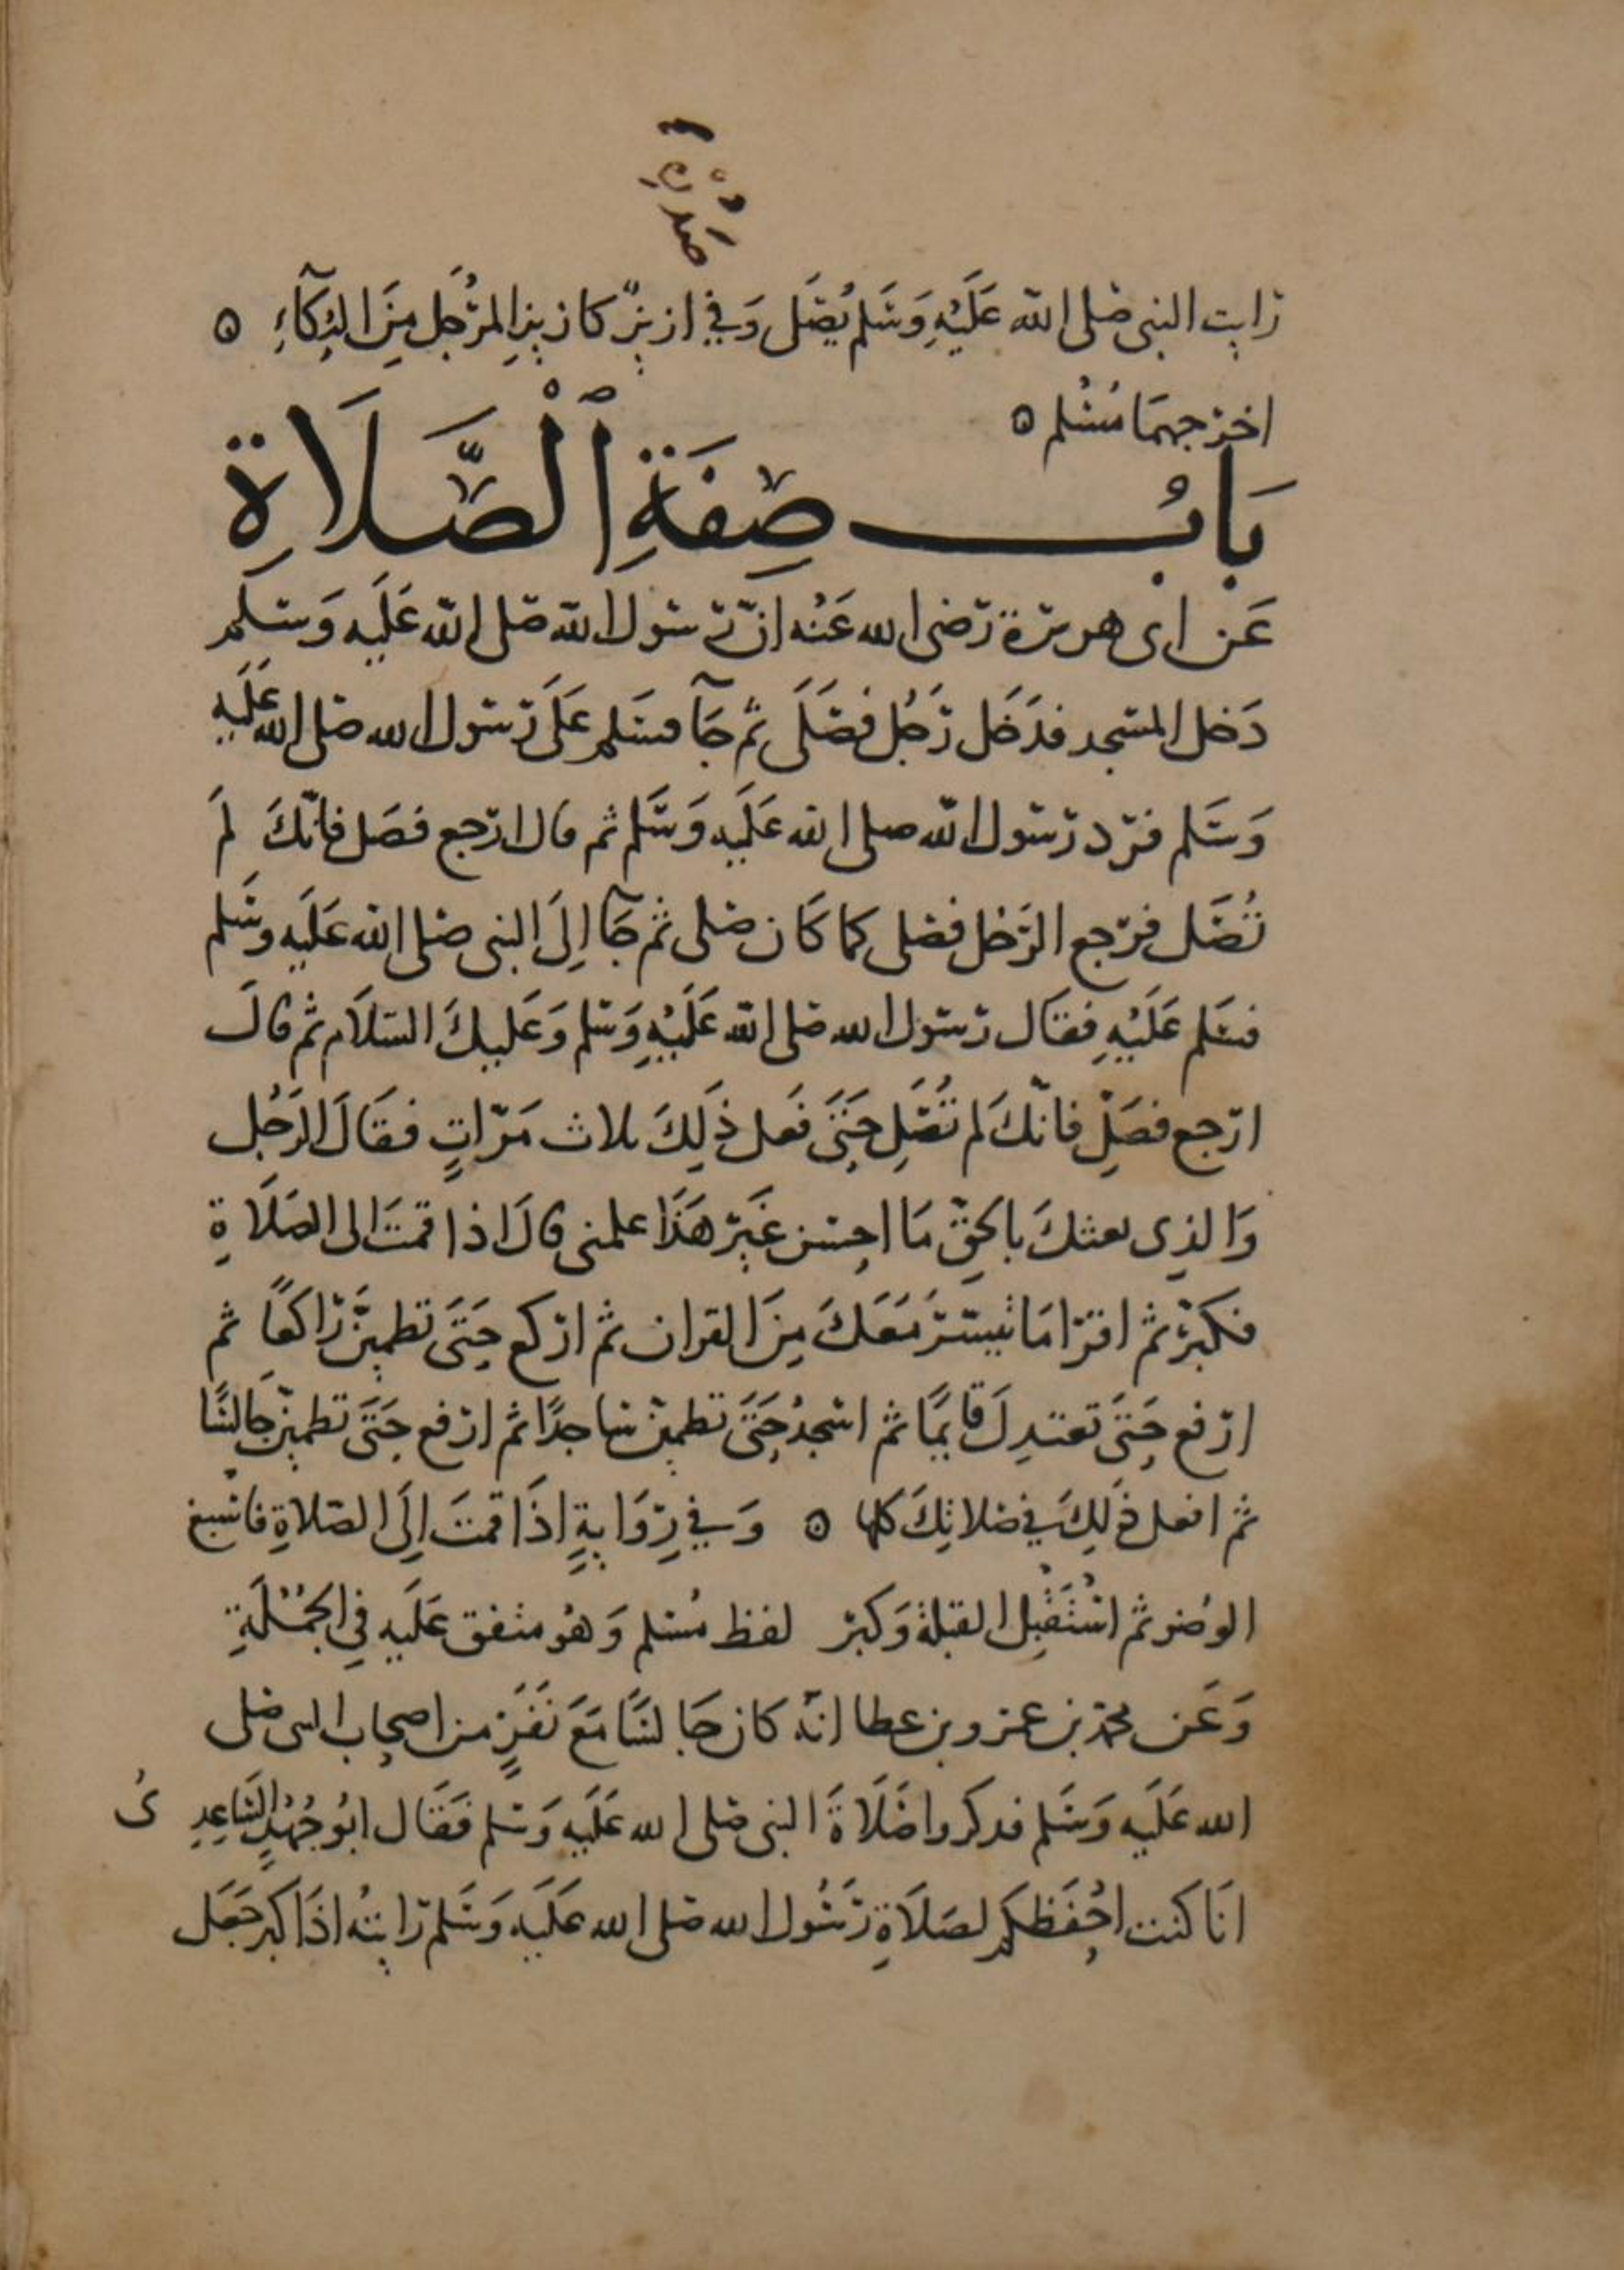 صَدْرِهِ
رايت النبى صلى الله عَلَيْهِ وَسَلم يُصَلى وَفي ازيزٌ كازيزِ المرْجَل مِنَ البُكآءِ ه
اخرجهمَا مُسْلم ه
بَابُ صِفَةِ ٱلْصَّلَاةِ
عَن ابى هريرة رضى الله عَنْه انّ رسول الله صلى الله عَلَيه وَسلم
دَخل المسْجد فدَخَل رَجُل فصَلَى ثم جَآ فسَلم عَلَى رَسول الله صلى الله عَلَيه
وَسَلم فرّد رَسول الله صلى الله عَلَيه وَسَّلم ثم قال ارجع فصَل فانّكَ لمَ
تُصَل فرَجع الرَجل فصَلى كما كَان صَلى ثم جَآ الِىَ النبى صلى الله عَلَيه وسَلم
فسَلم عَلَيْهِ فقَال رَسول الله صلى الله عَلَيْهِ وَسَلم وَعَليكَ السَلاَم ثم قالَ
ارجع فصَلِ فانّكَ لم تُصَلِ حَتَىَ فعَل ذَلِكَ ثلاث مَرّاتٍ فقَالَ الرَجُل
وَالذِى بعثكَ بالحَقّ مَا احسْن غَيرَ هَذَا علمنى قالَ اذا قمتَ الى الصَلَاةِ
فكبَرّ ثم اقرَا مَا تيسّرَ مَعَكَ مِنَ القران ثم اركع حَتَىَ تطمينَّ رَاكعًا ثم
ارفع حَتىَ تعتدِلَ قايمًا ثم اسْجدُ حَتَىَ تطمينّ سَاجدًا ثم ارفع حَتَىَ تطمينّ جَالسًا
ثم افعل ذَلِكَ في صَلاتِكَ كلها ه وَفي رِوَايةٍ اذَا قمتَ الِىَ الصَلاةِ فاسْبغ
الوضو ثم اسْتَقْبِل القبلة وَكبرَ لفظ مُسْلم وَهُو متفق عَلَيه في الجُمْلَةِ
وَعَن محمّد بن عمرو بن عطا انّه كان جَالسًا مَعَ نَفَرٍ من اصحاب النبى صلى
الله عَلَيه وَسَلم فدكروا صَلَاةَ النبى صلى الله عَلَيه وَسَلم فَقَال ابُو حُمَيْدٍ السَاعِدِىُ
انَا كنت احْفَظكم لصَلَاةِ رَسُول الله صلى الله عَلَيَه وَسَلم رَايتُه اذَا كبر جَعَل